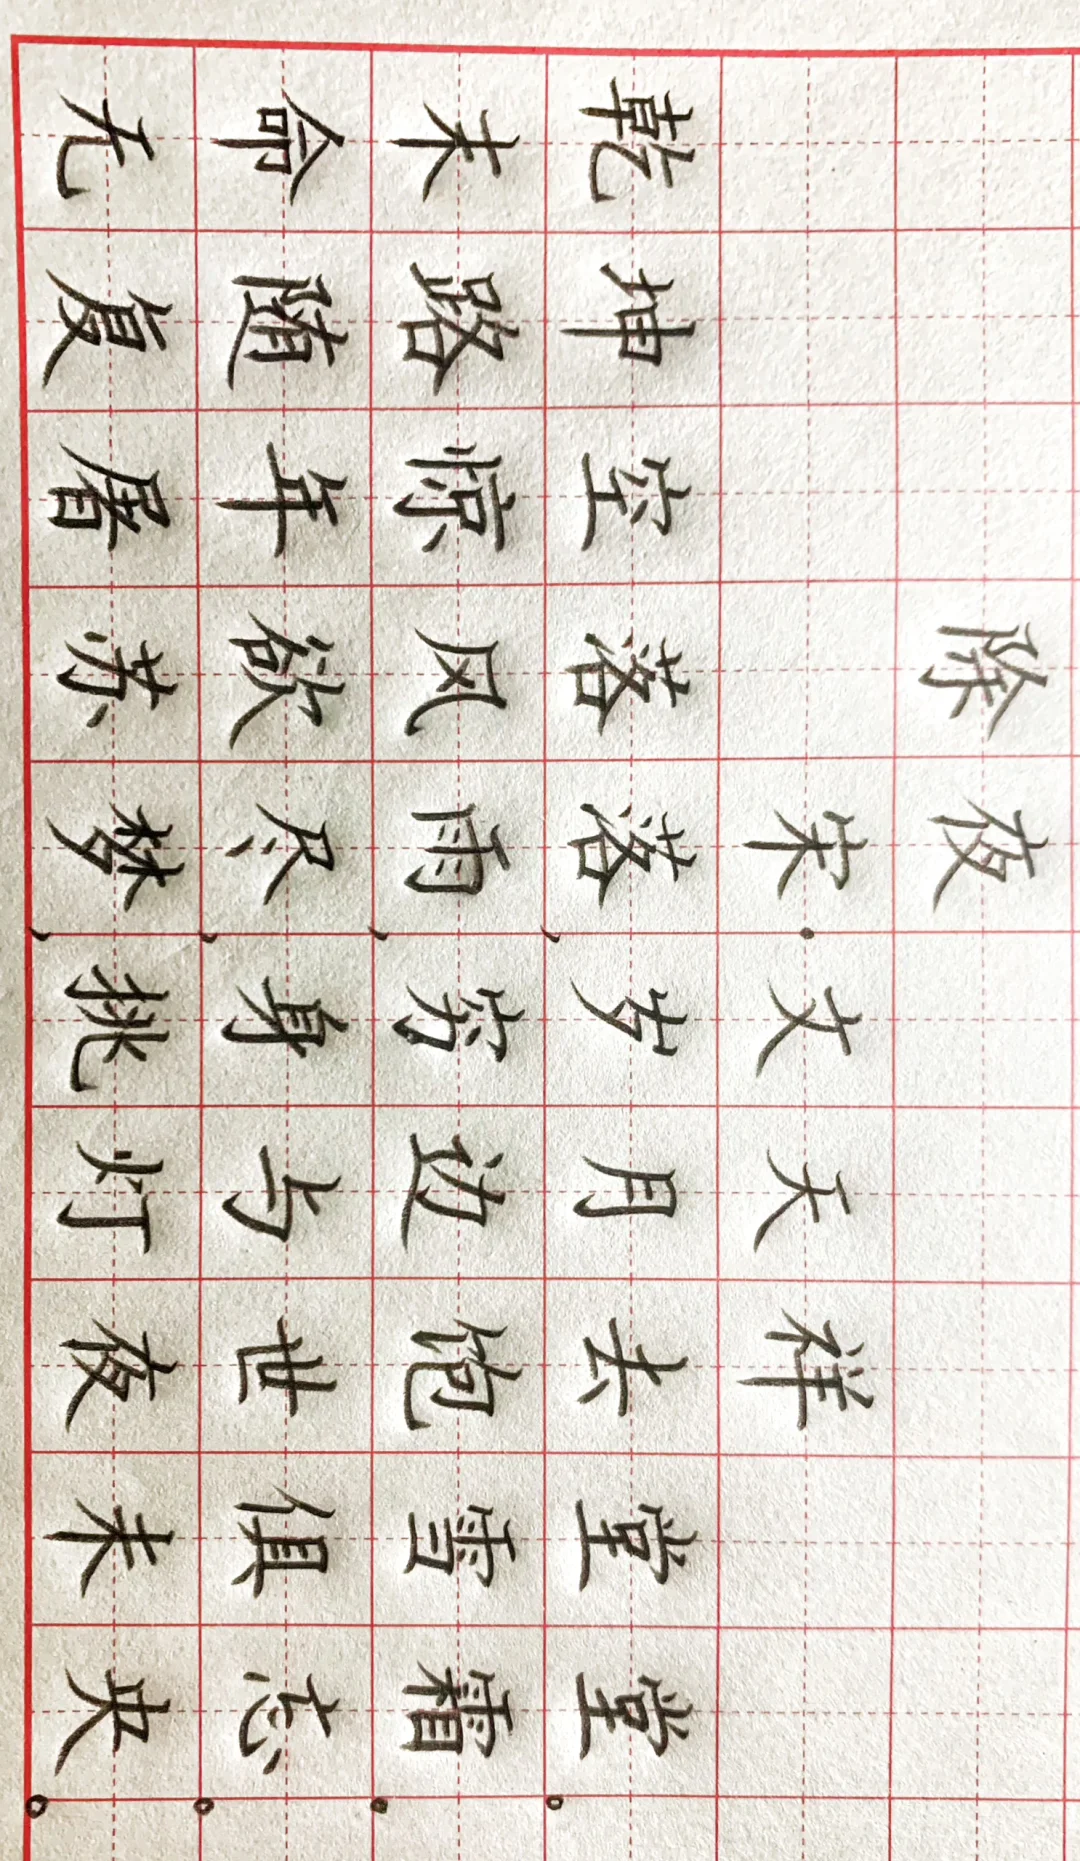 除夜
宋·文天祥
乾坤空落落，岁月去堂堂。
末路惊风雨，穷边饱雪霜。
命随年欲尽，身与世俱忘。
无复屠苏梦，挑灯夜未央。